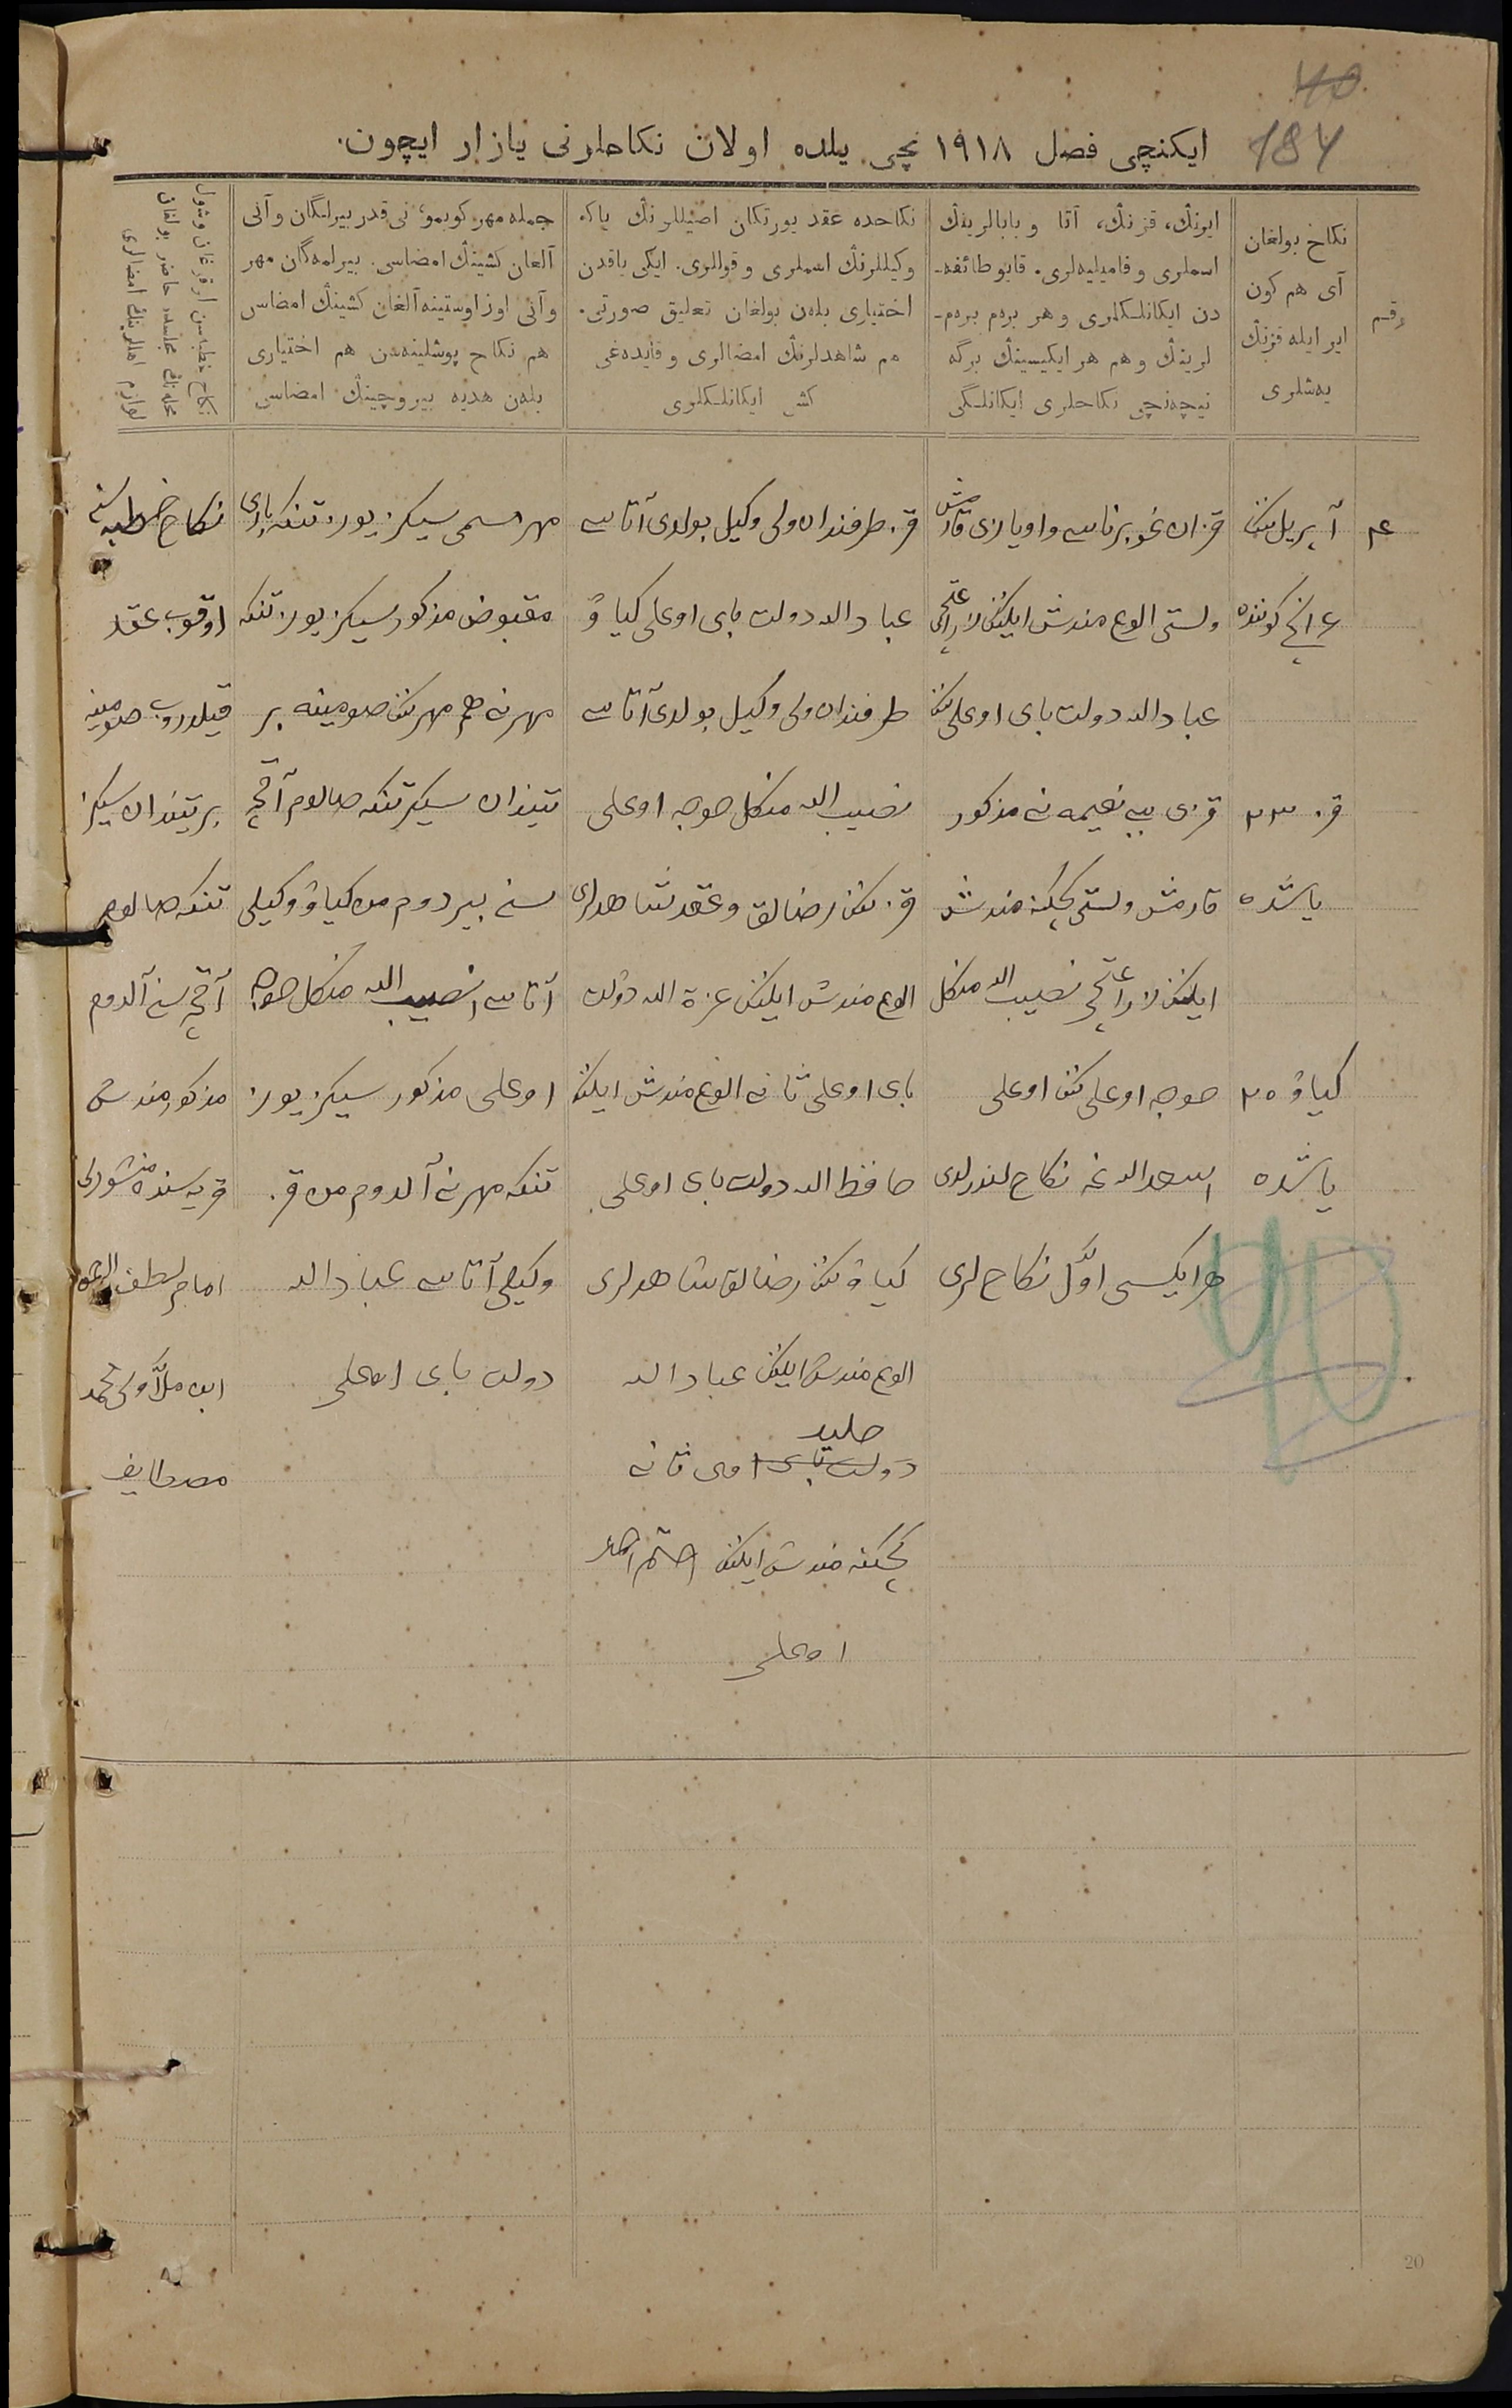 40
184
ایکنچی فصل ١٩١٨ نچی یلده اولان نکاحلرنی یازار ایچون.
رقم
نکاح بولغان
آی هم کون
ایر ایله قزنڭ
یەشلری
ایرنڭ، قزنڭ، آتا و بابالرینڭ
اسملری و فامیلیەلری. قایو طائفه‌-
دن ایکانلکلری و هر برەم برەم-
لرینڭ و هم هر ایکیسینڭ برگه
نیچه‌نچی نکاحلری ایکانلگی
نکاحده عقد یورتکان اصیللرنڭ یاکه
وکیللرنڭ اسملری و قوللری. ایکی یاقدن
اختیاری بلەن بولغان تعلیق صورتی.
هم شاهدلرنڭ امضالری و قایده‌غی
کشی ایکانلکلری
جمله مهر کوبمو، نی قدر بیرلگان و آنی
آلغان کشینڭ امضاسی. بیرلمه‌گان مهر
و آنی اوز اوستینه آلغان کشینڭ امضاسی
هم نکاح پوشلینه‌سن هم اختیاری
بلەن هدیه بیروچینڭ امضاسی
نکاح خطبه‌سن اوقوغان وشول
مجلسده حاضر بولغان
امضالری
٤
آپریل ننڭ
١٤ نچی کوننده
قز ٢٣
یاشده
کیاو ٢٥
یاشده
قزان غوبرناسی و اویازی قارمش
ولستی الوغ مندش ایلینڭ لاراعتچی
عبادالله دولت بای اوغلی ننڭ
قزی بیبی نعیمه نی مذکور
قارمش ولستی کچکنه مندش
ایلینڭ لاراعتچی نصیب الله منکل
خوجه اوغلی ننڭ اوغلی
اسعدالله غه نکاح لندرلدی
هر ایکیسی اوّل نکاح لری
قز طرفندان ولی وکیل بولدی آتاسی
عبادالله دولت بای اوغلی کیاو
طرفندان ولی وکیل بولدی آتاسی
نصیب الله منکل خوجه اوغلی
قز ننڭ رضالق وعقد شاهدلری
الوغ مندش ایلینڭ عزة الله دولت
بای اوغلی ثانی الوغ مندش ایلینڭ
حافظ الله دولت بای اوغلی
کیاو ننڭ رضالق شاهدلری
الوغ مندش ایلینڭ عبادالله
دولت بای اوغلی ثانی
کچکنه مندش ایلینڭ
اوغلی
مهر مسمی سیکز یوز تنکه باری
مقبوض مذکور سیکز یوز تنکه
مهر نی هم مهر ننڭ صومینه بر
تیندان سیکز تنکه صالوم آقچه
سنی بیردوم من کیاو وکیلی
آتاسی نصیب الله منکل خوجه
اوغلی مذکور سیکز یوز
تنکه مهر نی آلدوم من قز
وکیلی آتاسی عبادالله
دولت بای اوغلی
نکاح خطبه سنی
اوقوب عقد
قیلدروب صومینه
بر تیندان سیکز
تنکه صالوم
آقچه سنی آلدوم
مذکور مندش
قریه سنده منشورلی
امام لطف الرحمن
ابن ملا ولی محمد
20